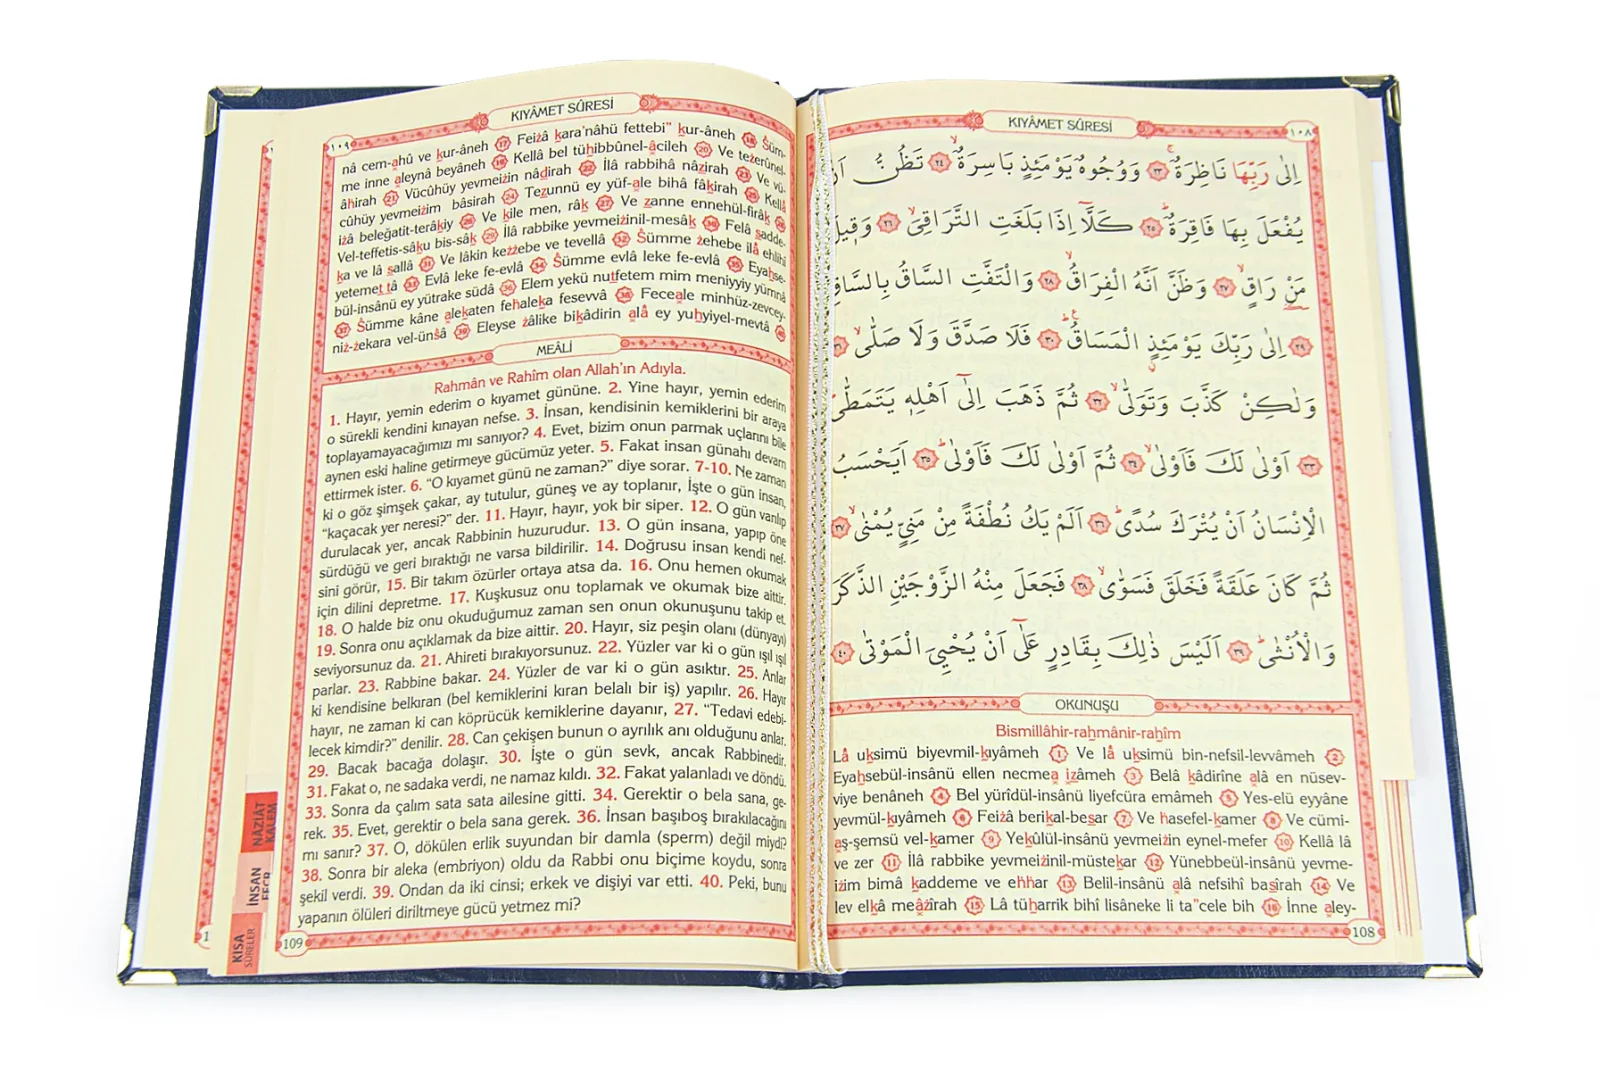 KIYÂMET SÛRESİ
١٠٨
اِلٰى رَبِّهَا نَاظِرَةٌۚ ﴿٢٣﴾ وَوُجُوهٌ يَوْمَئِذٍ بَاسِرَةٌۙ ﴿٢٤﴾ تَظُنُّ اَنْ
يُفْعَلَ بِهَا فَاقِرَةٌۜ ﴿٢٥﴾ كَلَّٓا اِذَا بَلَغَتِ التَّرَاقِيَۙ ﴿٢٦﴾ وَق۪يلَ
مَنْ رَاقٍۙ ﴿٢٧﴾ وَظَنَّ اَنَّهُ الْفِرَاقُۙ ﴿٢٨﴾ وَالْتَفَّتِ السَّاقُ بِالسَّاقِ
﴿٢٩﴾ اِلٰى رَبِّكَ يَوْمَئِذٍ الْمَسَاقُۜ ﴿٣٠﴾ فَلَا صَدَّقَ وَلَا صَلّٰىۙ ﴿٣١﴾
وَلٰكِنْ كَذَّبَ وَتَوَلّٰىۙ ﴿٣٢﴾ ثُمَّ ذَهَبَ اِلٰٓى اَهْلِه۪ يَتَمَطّٰى
﴿٣٣﴾ اَوْلٰى لَكَ فَاَوْلٰىۙ ﴿٣٤﴾ ثُمَّ اَوْلٰى لَكَ فَاَوْلٰىۜ ﴿٣٥﴾ اَيَحْسَبُ
الْاِنْسَانُ اَنْ يُتْرَكَ سُدًىۜ ﴿٣٦﴾ اَلَمْ يَكُ نُطْفَةً مِنْ مَنِيٍّ يُمْنٰىۙ ﴿٣٧﴾
ثُمَّ كَانَ عَلَقَةً فَخَلَقَ فَسَوّٰىۙ ﴿٣٨﴾ فَجَعَلَ مِنْهُ الزَّوْجَيْنِ الذَّكَرَ
وَالْاُنْثٰىۜ ﴿٣٩﴾ اَلَيْسَ ذٰلِكَ بِقَادِرٍ عَلٰٓى اَنْ يُحْيِيَ الْمَوْتٰى ﴿٤٠﴾
OKUNUŞU
Bismillâhir-rahmânir-rahîm
Lâ uksimü biyevmil-kıyâmeh 1 Ve lâ uksimü bin-nefsil-levvâmeh 2
Eyahsebül-insânü ellen necmea izâmeh 3 Belâ kâdirîne alâ en nüsev-
viye benâneh 4 Bel yürîdül-insânü liyefcüra emâmeh 5 Yes-elü eyyâne
yevmül-kıyâmeh 6 Feizâ berikal-besar 7 Ve hasefel-kamer 8 Ve cümi-
aş-şemsü vel-kamer 9 Yekûlül-insânü yevmeizin eynel-mefer 10 Kellâ lâ
ve zer 11 İlâ rabbike yevmeizinil-müstekar 12 Yünebbeül-insânü yevme-
izim bimâ kaddeme ve ehhar 13 Belil-insânü alâ nefsihî basîrah 14 Ve
lev elkâ meâzîrah 15 Lâ tüharrik bihî lisâneke li ta"cele bih 16 İnne aley-
108
KIYÂMET SÛRESİ
١٠٩
nâ cem-ahû ve kur-âneh 17 Feizâ kara'nâhü fettebi" kur-âneh 18 Süm-
me inne aleynâ beyâneh 19 Kellâ bel tühibbûnel-âcileh 20 Ve tezerûnel-
âhirah 21 Vücûhüy yevmeizin nâdirah 22 İlâ rabbihâ nâzirah 23 Ve vü-
cûhüy yevmeizim bâsirah 24 Tezunnü ey yüf-ale bihâ fâkirah 25 Kellâ
izâ beleğatit-terâkiy 26 Ve kile men, râk 27 Ve zanne ennehül-firâk 28
Vel-teffetis-sâku bis-sâk 29 İlâ rabbike yevmeizinil-mesâk 30 Felâ sadde-
ka ve lâ sallâ 31 Ve lâkin kezzebe ve tevellâ 32 Sümme zehebe ilâ ehlihî
yetemettâ 33 Evlâ leke fe-evlâ 34 Sümme evlâ leke fe-evlâ 35 Eyahse-
bül-insânü ey yütrake südâ 36 Elem yekü nutfetem mim meniyyiy yümnâ
37 Sümme kâne alekaten fehaleka fesevvâ 38 Feceale minhüz-zevcey-
niz-zekara vel-ünsâ 39 Eleyse zâlike bikâdirin alâ ey yuhyiyel-mevtâ 40
MEÂLİ
Rahmân ve Rahîm olan Allah'ın Adıyla.
1. Hayır, yemin ederim o kıyamet gününe. 2. Yine hayır, yemin ederim
o sürekli kendini kınayan nefse. 3. İnsan, kendisinin kemiklerini bir araya
toplayamayacağımızı mı sanıyor? 4. Evet, bizim onun parmak uçlarını bile
aynen eski haline getirmeye gücümüz yeter. 5. Fakat insan günahı devam
ettirmek ister. 6. “O kıyamet günü ne zaman?” diye sorar. 7-10. Ne zaman
ki o göz şimşek çakar, ay tutulur, güneş ve ay toplanır, İşte o gün insan,
“kaçacak yer neresi?” der. 11. Hayır, hayır, yok bir siper. 12. O gün varılıp
durulacak yer, ancak Rabbinin huzurudur. 13. O gün insana, yapıp öne
sürdüğü ve geri bıraktığı ne varsa bildirilir. 14. Doğrusu insan kendi nef-
sini görür, 15. Bir takım özürler ortaya atsa da. 16. Onu hemen okumak
için dilini depretme. 17. Kuşkusuz onu toplamak ve okumak bize aittir.
18. O halde biz onu okuduğumuz zaman sen onun okunuşunu takip et.
19. Sonra onu açıklamak da bize aittir. 20. Hayır, siz peşin olanı (dünyayı)
seviyorsunuz da. 21. Ahireti bırakıyorsunuz. 22. Yüzler var ki o gün ışıl ışıl
parlar. 23. Rabbine bakar. 24. Yüzler de var ki o gün asıktır. 25. Anlar
ki kendisine belkıran (bel kemiklerini kıran belalı bir iş) yapılır. 26. Hayır
hayır, ne zaman ki can köprücük kemiklerine dayanır, 27. “Tedavi edebi-
lecek kimdir?” denilir. 28. Can çekişen bunun o ayrılık anı olduğunu anlar.
29. Bacak bacağa dolaşır. 30. İşte o gün sevk, ancak Rabbinedir.
31. Fakat o, ne sadaka verdi, ne namaz kıldı. 32. Fakat yalanladı ve döndü.
33. Sonra da çalım sata sata ailesine gitti. 34. Gerektir o bela sana, ge-
rek. 35. Evet, gerektir o bela sana gerek. 36. İnsan başıboş bırakılacağını
mı sanır? 37. O, dökülen erlik suyundan bir damla (sperm) değil miydi?
38. Sonra bir aleka (embriyon) oldu da Rabbi onu biçime koydu, sonra
şekil verdi. 39. Ondan da iki cinsi; erkek ve dişiyi var etti. 40. Peki, bunu
yapanın ölüleri diriltmeye gücü yetmez mi?
109
NAZİÂT
KALEM
İNSAN
KISA
SÛRELER